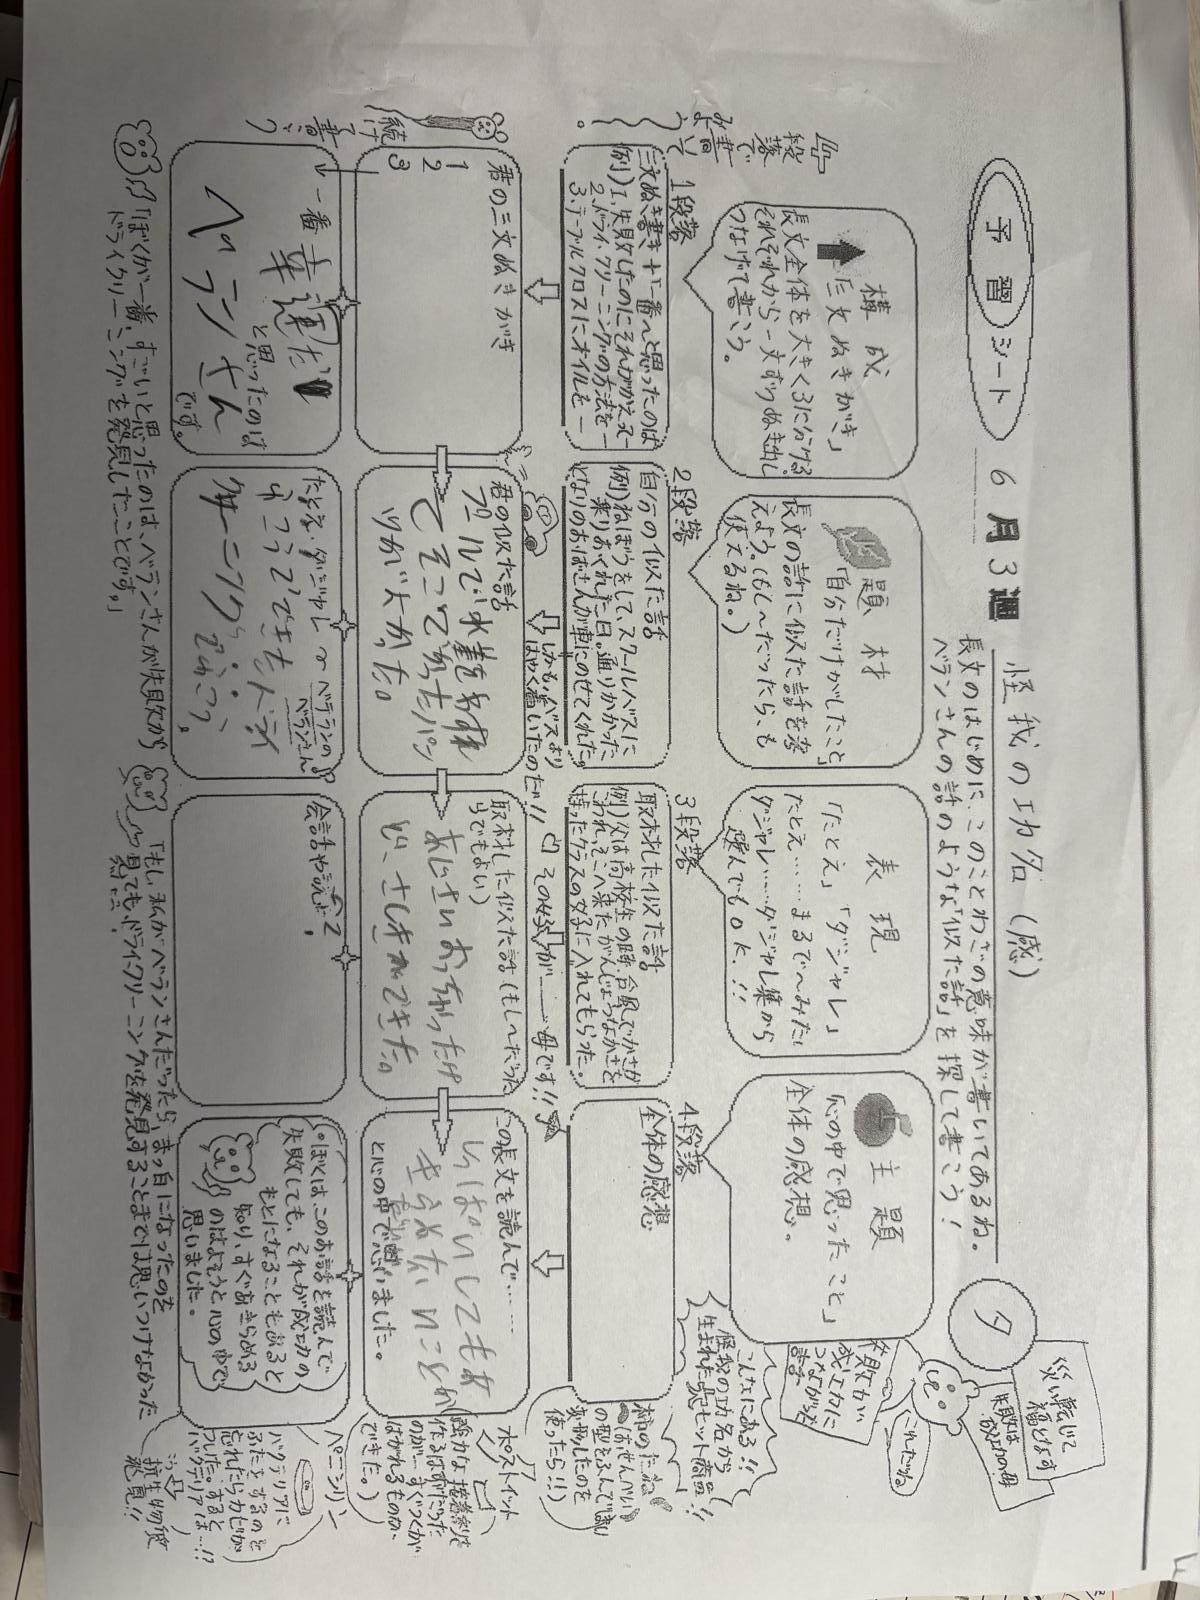 予習シート
6月3週
怪我の功名（感）
長文のはじめに、このことわざの意味が書いてあるね。
ベランさんの話のような「似た話」を探して書こう！
夕
災い転じて
福となす
失敗は
成功の母
これだね。
失敗が
成功に
つながった
言葉
構成
「三文ぬきがき」
長文全体を大きく3に分ける
それぞれから一文ずつぬき出し
つなげて書こう。
題材
「自分だけがしたこと」
長文の話に似た話を考
えよう。（もし〜だったら、も
使えるね。）
表現
「たとえ」「ダジャレ」
たとえ……まるで〜みたい
ダジャレ……ダジャレ集から
選んでもOK!!
主題
「心の中で思ったこと」
全体の感想。
こんなにある!!
怪我の功名から
生まれた
商品!!
各段落で
書いて
みよう
1段落
三文ぬき書き＋一番〜と思ったのは
例）1、失敗したのにそれがかえ―
2、ドライクリーニングの方法を―
3、テーブルクロスにオイルを―
2段落
自分の似た話
例）ねぼうをして、スクールバスに
乗りおくれた日。通りかかった
となりのおばさんが車にのせてくれた。
しかも、バスより
はやく着いたのだ!!
3段落
取材した似た話
例）父は高校生の時、台風でかさが
こわれ、そこへ来たがんじょうなかさを
持ったクラスの女子に入れてもらった。
その女子が……母です!!
4段落
全体の感想
柿のたね
おせんべい
の型をふんで
使ったら!!）
君の三文ぬきがき
1
2
3
続けて書こう
君の似た話
プールで水着をわすれ
てそこで
パン
ツがよかった。
取材した似た話（もし〜だった
らでもよい）
あじさい
さしきができた。
この長文を読んで……
しっぱいしてもあ
きらめないことが
と心の中で思いました。
ポストイット
強力な接着剤を
作るはずだった
のが…すぐつくが
はがれるものが、
できた。）
一番
幸運だ
と思ったのは
ベランさん
です。
たとえ・ダジャレ
ベテランの
ベランさん
会話や読んで？
「ぼくはこのお話を読んで
失敗しても、それが成功の
もとになることもあると
知り、すぐあきらめる
のはよそうと心の中で
思いました。
ペニシリン
バクテリアに
ふたをするのを
忘れたらカビが
つした。すると
バクテリアは…!?
抗生物質
発見!!
「ぼくが一番、すごいと思ったのは、ベランさんが失敗から
ドライクリーニングを発見したことです。」
「もし、私がベランさんだったら、まっ白になったのを
見ても、ドライクリーニングを発見することまでは思いつけなかった